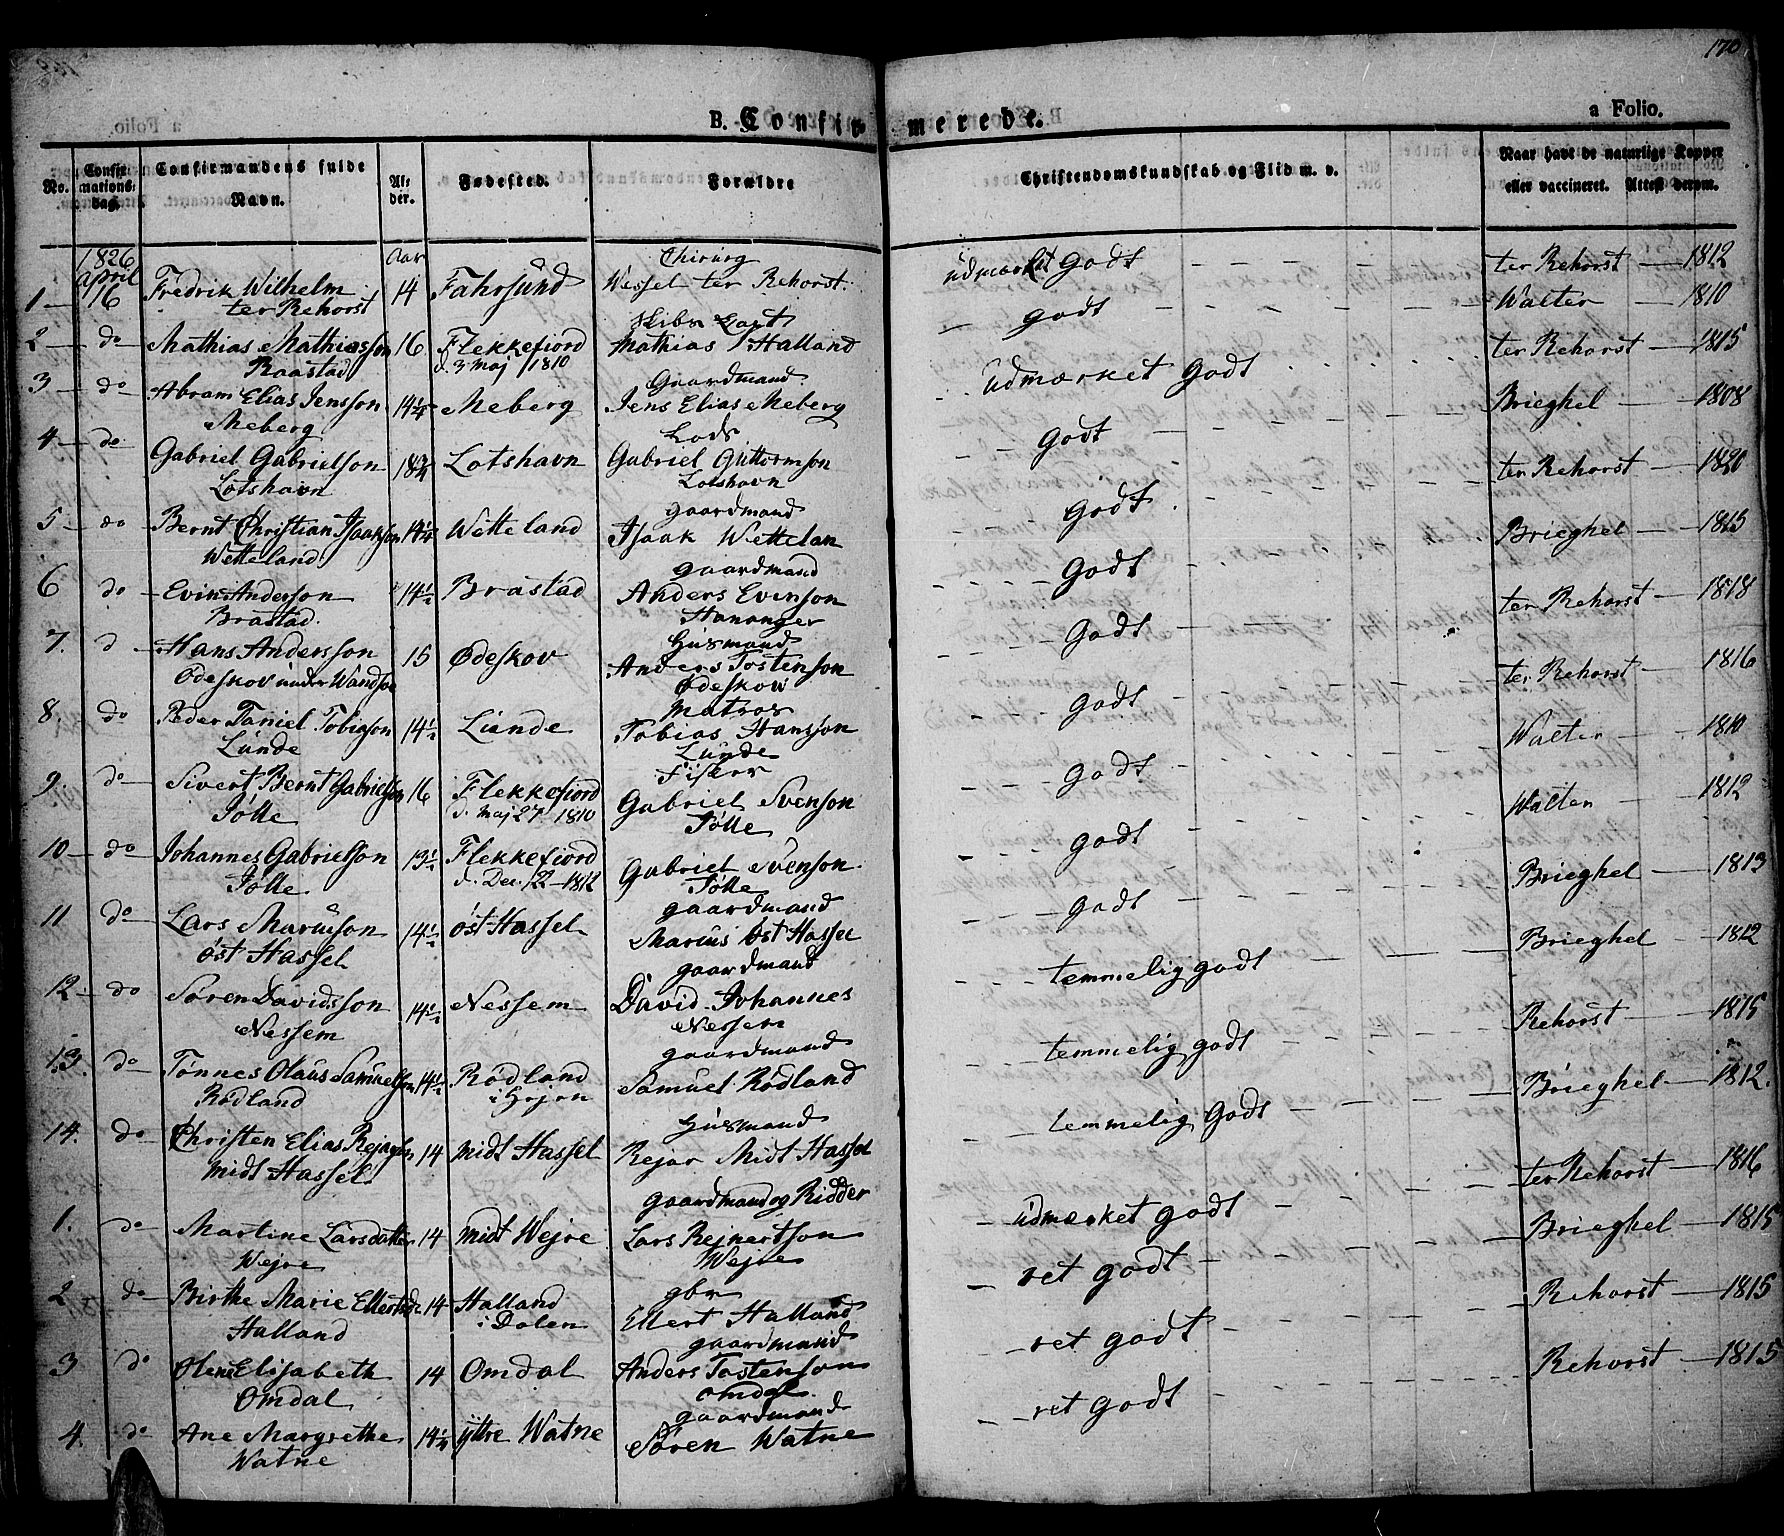 170
B. Confirmerede.
a Folio.
No. Confirmations-dag. Confirmandens fulde Navn. Alder. Fødested. Forældre Christendomskundskab og Flid m. v. Naar havt de naturlige Kopper eller vaccineret. Attest derom.
1826 Aar Chirurg
April
1 — 16 Fredrik Wilhelm 14 Fahrsund Wessel ter Rehorst. udmærket godt ter Rehorst — 1812
ter Rehorst
Skibs
2 — do Mathias Mathiasson 16 Flekkefiord Mathias Halland godt Walter — 1810
Raastad d. 3 Maj 1810
Gaardmand
3 — do Abram Elias Jensson 14¼ Meberg Jens Elias Meberg udmærket godt ter Rehorst — 1815
Meberg
Lods
4 — do Gabriel Gabrielson 18¾ Lotshavn Gabriel Guttormson godt Brieghel — 1808
Lotshavn Lotshavn
gaardmand
5 — do Bernt Christian Isaakson 14¼ Wetteland Isaak Wettelan godt ter Rehorst — 1820
Wetteland
gaardmand
6 do Evin Anderson 14½ Brastad Anders Evenson godt Brieghel — 1815
Brastad. Hananger
Husmand
7. d Hans Andersson 15 Ødeskov Anders Tostenson godt ter Rehorst — 1818
Ødeskov under Wandsø Ødeskow
Matros
8. do Peder Taniel Tobiason 14½ Lunde Tobias Hansson godt ter Rehorst — 1816
Lunde Lunde
Fisker
9. do Sivert Bernt Gabrielson 16 Flekkefiord Gabriel Svenson godt Walter — 1810
Tølle d. Maj 27 1810 Tølle
10 — do Johannes Gabrielson 13½ Flekkefiord Gabriel Svenson godt Walter — 1812
Tølle d. Dec. 22 — 1812 Tølle
gaardmand
11 do Lars Mariusson 14½ øst Hassel Marius Øst Hassel godt Brieghel — 1813
øst Hassel
gaardmand
12 — do Søren Davidsson 14½ Nessem David Johannes temmelig godt Brieghel — 1812
Nessem Nessem
gaardmand
13. do Tønnes Olaus Samuelson 14½ Rødland Samuel Rødland temmelig godt Rehorst — 1815
Rødland
Husmand
14. do Christen Elias Rejarsen 14 midt Hassel Rejar Midt Hassel temmelig godt Brieghel — 1812.
midt Hassel
gaardmand og Ridder
1. do Martine Larsdatter 14 midt Wejre Lars Rejnertson udmærket godt ter Rehorst — 1816
Wejre Wejre
gbr
2 do Birthe Marie Ellertsdr 14 Halland Ellert Halland ret godt Brieghel — 1815
Halland i Dalen
gaardmand
3 do Olene Elisabeth 14 Omdal Anders Tostenson ret godt Rehorst — 1815
Omdal Omdal
gaardmand
4. do Ane Margrethe 14¼ yttre Watne Søren Watne ret godt Rehorst — 1815
Watne